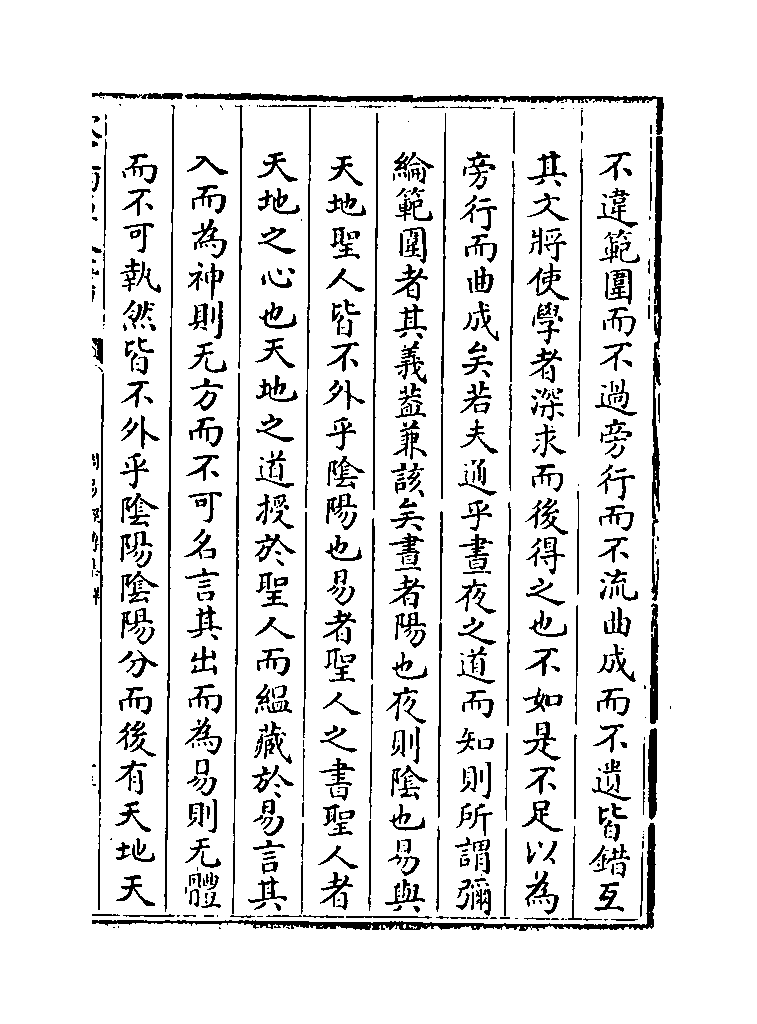 不違範圍而不過旁行而不流曲成而不遺皆錯互
其文將使學者深求而後得之也不如是不足以為
旁行而曲成矣若夫通乎晝夜之道而知則所謂彌
綸範圍者其義葢兼該矣晝者陽也夜則陰也易與
天地聖人皆不外乎陰陽也易者聖人之書聖人者
天地之心也天地之道授於聖人而緼藏於易言其
入而為神則无方而不可名言其出而為易則无體
而不可執然皆不外乎陰陽陰陽分而後有天地天